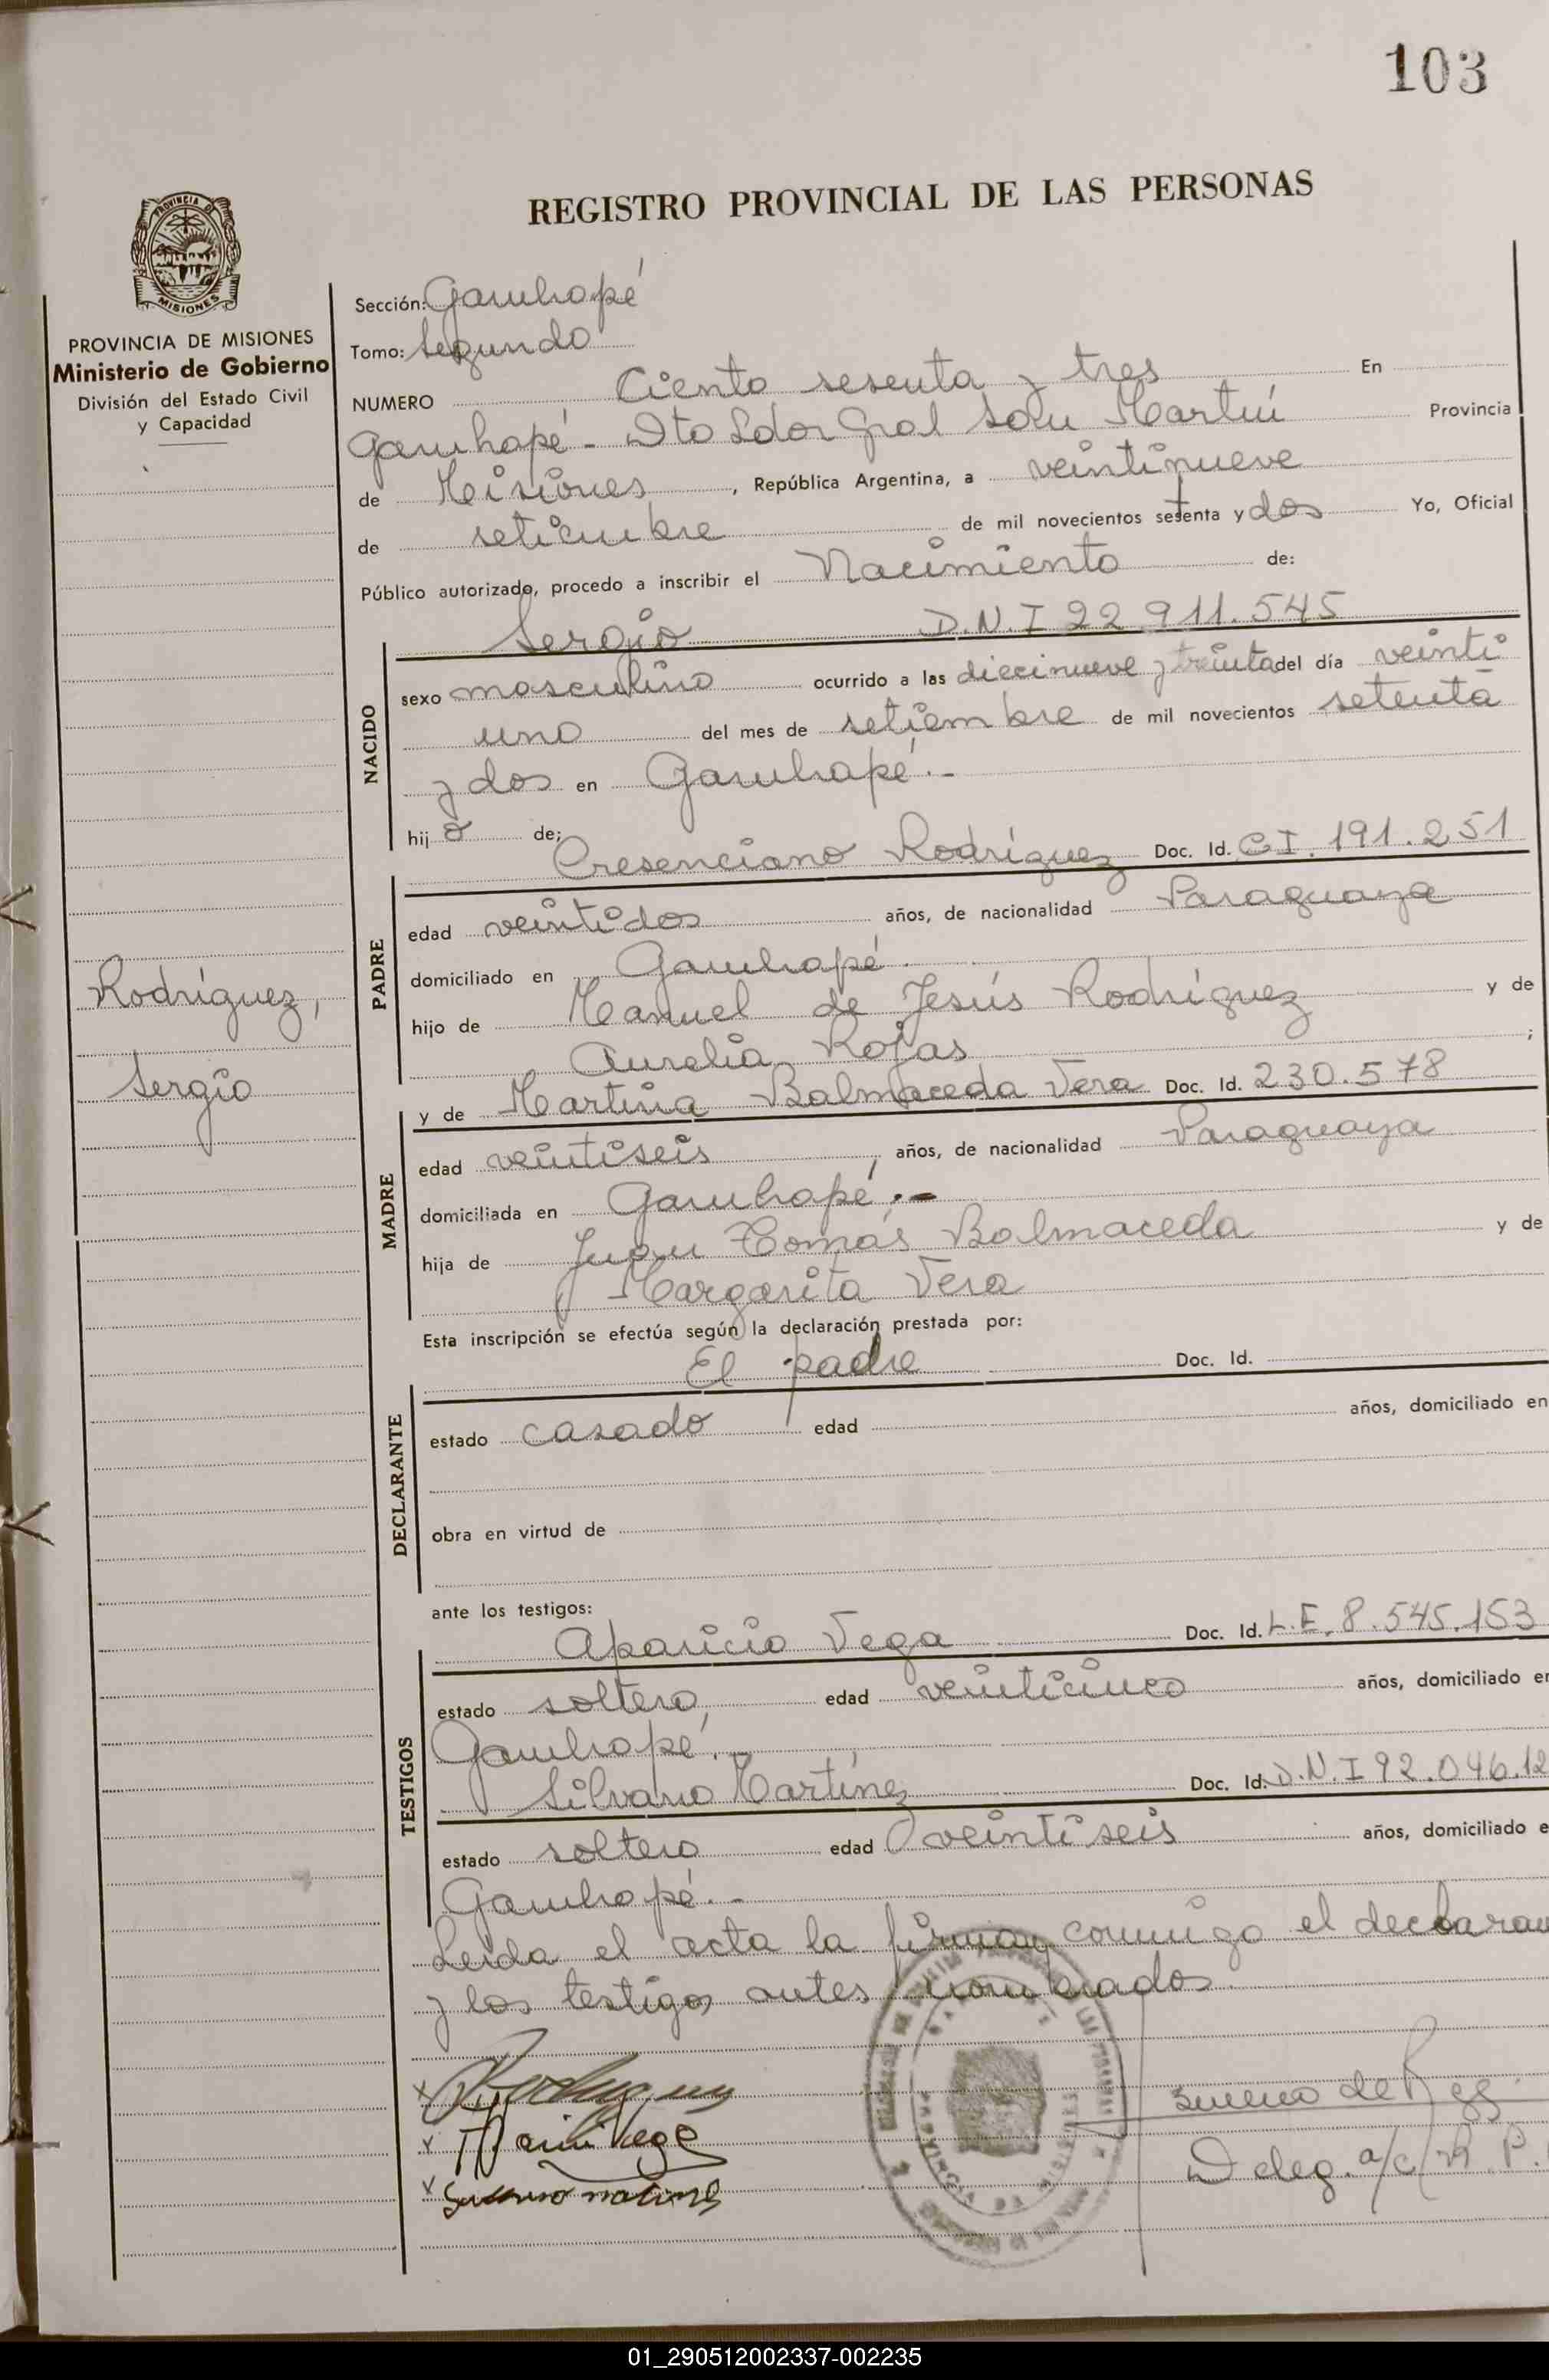 103
REGISTRO PROVINCIAL DE LAS PERSONAS
PROVINCIA DE MISIONES
Ministerio de Gobierno
División del Estado Civil
y Capacidad
Sección: Garuhapé
Tomo: Segundo
NUMERO Ciento sesenta y tres En
Garuhapé - Dto Ldor Gral San Martín Provincia
de Misiones, República Argentina, a veintinueve
de setiembre de mil novecientos setenta y dos Yo, Oficial
Público autorizado, procedo a inscribir el Nacimiento de:
Sergio D.N.I 22.911.545
NACIDO
sexo masculino ocurrido a las diecinueve y treinta del día veinti
uno del mes de setiembre de mil novecientos setenta
y dos en Garuhapé.-
hijo de;
Cresenciano Rodríguez Doc. Id. C.I. 191.251
PADRE
edad veintidos años, de nacionalidad Paraguaya
domiciliado en Garuhapé.
hijo de Manuel de Jesús Rodríguez y de
Aurelia Rojas ;
Rodríguez,
Sergio
y de Martina Balmaceda Vera Doc. Id. 230.578
MADRE
edad veintiseis, años, de nacionalidad Paraguaya
domiciliada en Garuhapé.-
hija de Juan Tomás Balmaceda y de
Margarita Vera
Esta inscripción se efectúa según la declaración prestada por:
El padre Doc. Id.
DECLARANTE
estado casado edad años, domiciliado en
obra en virtud de
ante los testigos:
Aparicio Vega Doc. Id. L.E. 8.545.153
TESTIGOS
estado soltero, edad veinticinco años, domiciliado en
Garuhapé.
Silvano Martínez Doc. Id. D.N.I 92.046.12
estado soltero edad veintiseis años, domiciliado e
Garuhapé.-
Leida el acta la firman conmigo el declaran
y los testigos antes nombrados.
x Rodriguez
x Vega
x
de R
Deleg. a/c R.P.
01_290512002337-002235